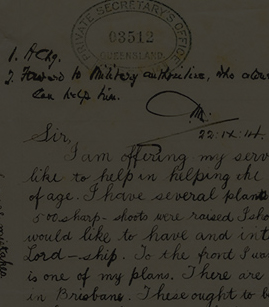 PRIVATE SECRETARY'S OFFICE
03512
QUEENSLAND
1. Ackg.
2. Forward to Military authorities, who alone
can help him.
22.IX.14.
Sir,
I am offering my serv
like to help in helping the
of age. I have several plans
500 sharp-shoots were raised I sho
would like to have and int
Lord-ship. To the front I wa
is one of my plans. There are
in Brisbane. These ought to b